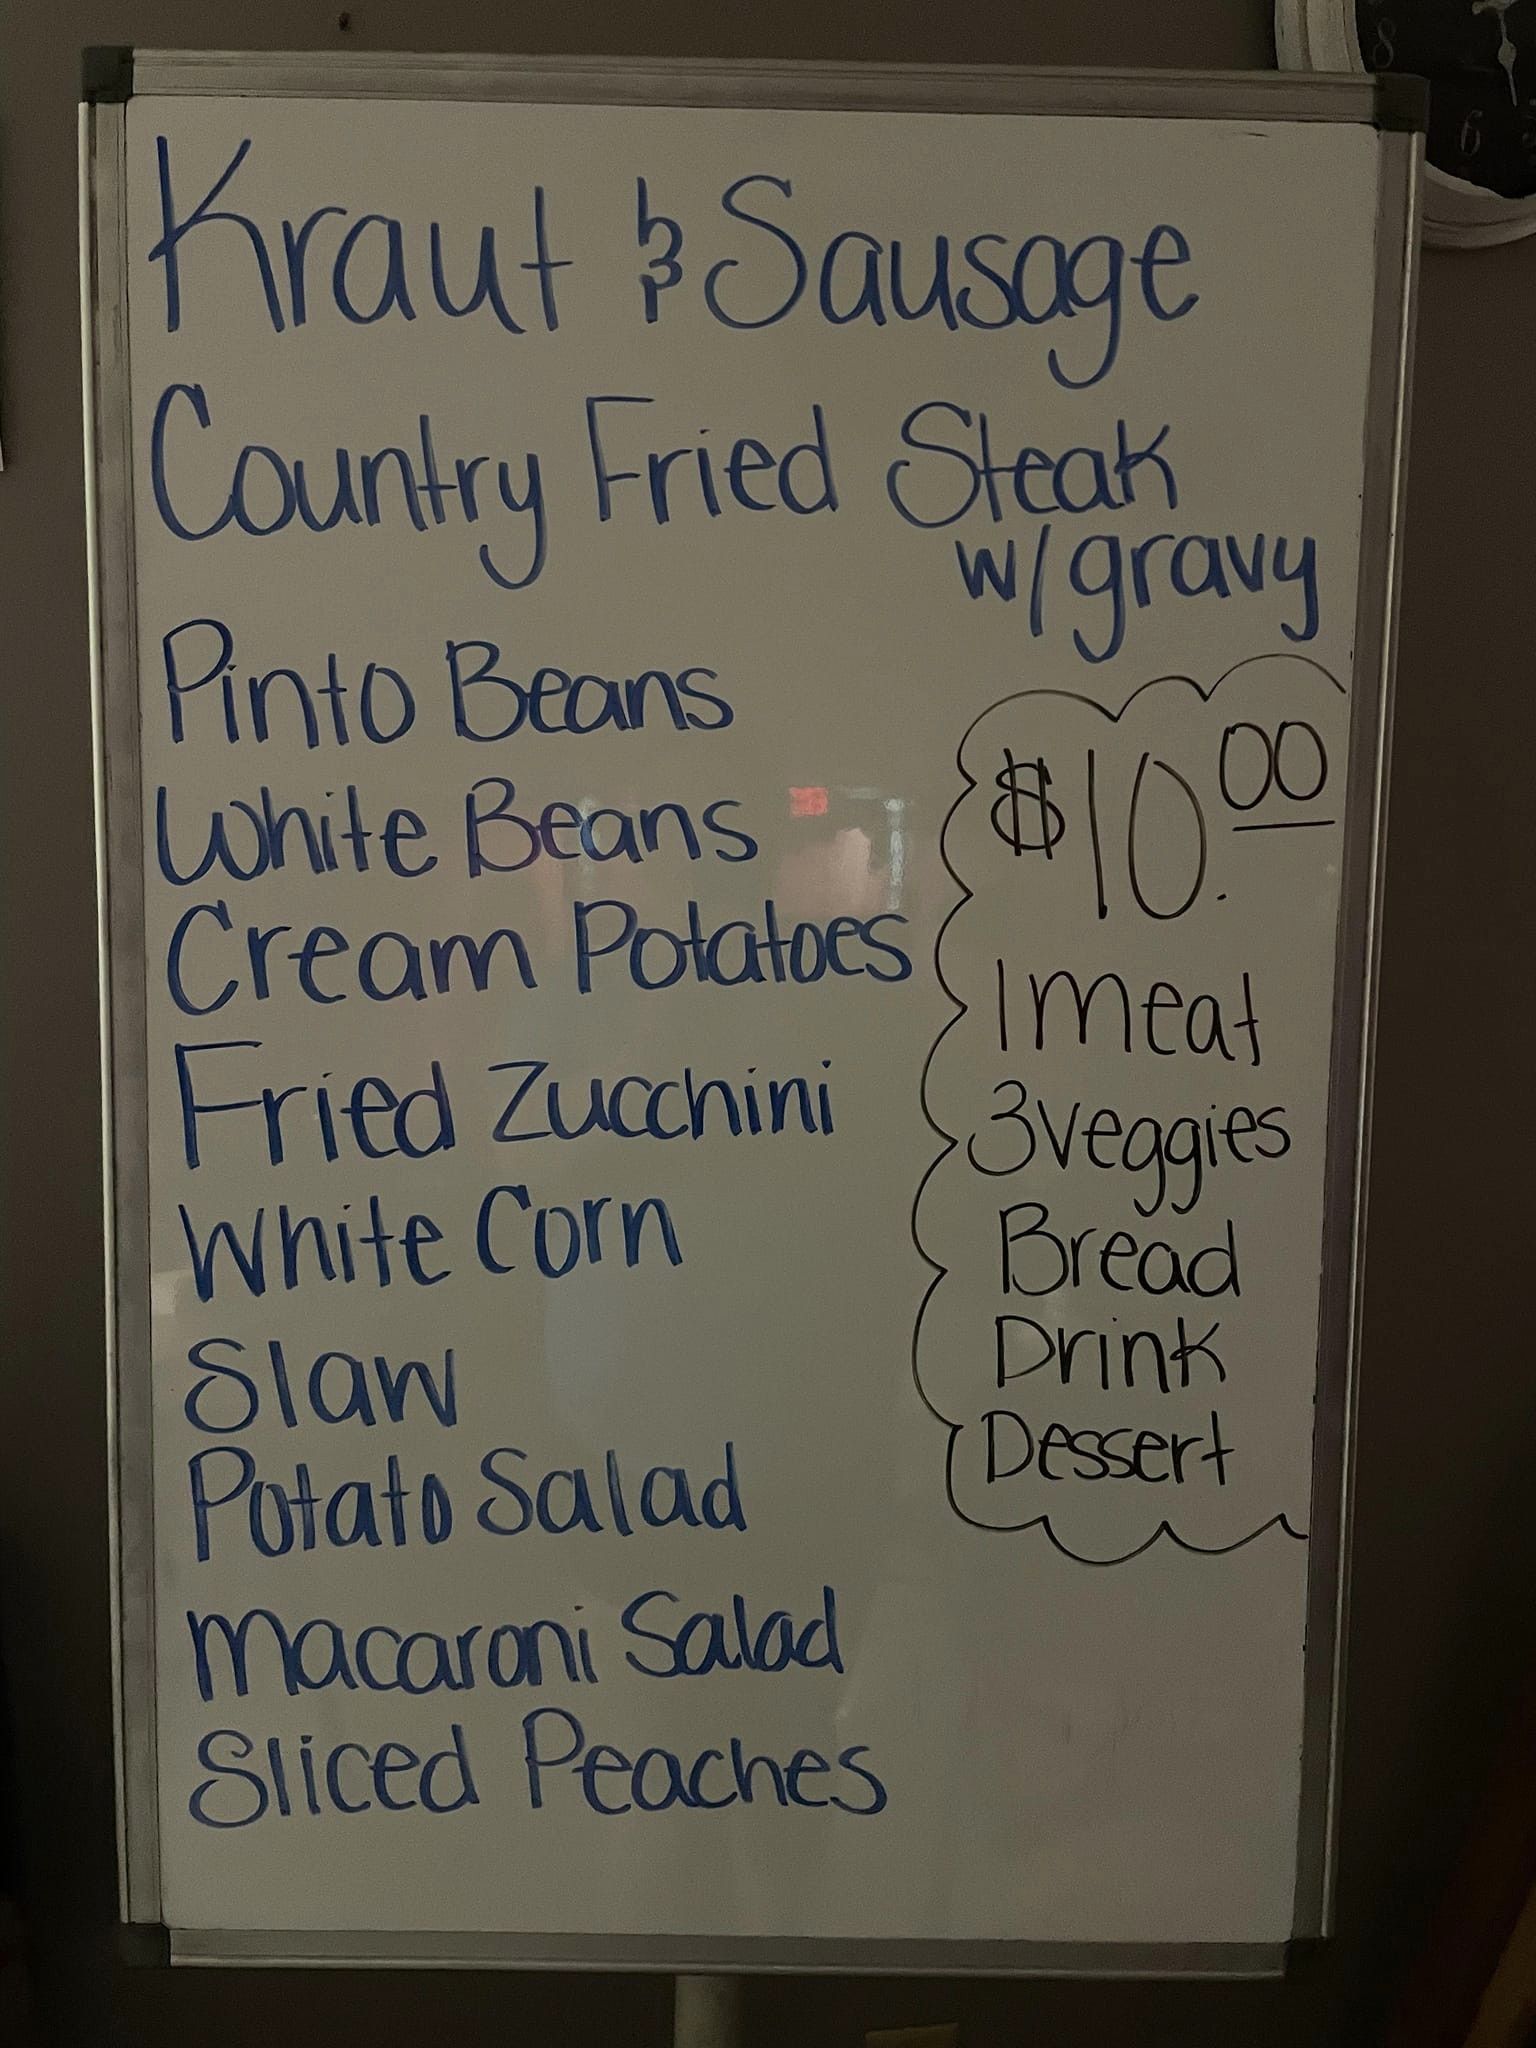 Kraut & Sausage
Country Fried Steak
w/gravy
Pinto Beans
White Beans
Cream Potatoes
Fried Zucchini
White Corn
Slaw
Potato Salad
Macaroni Salad
Sliced Peaches
$10.00
1 meat
3 veggies
Bread
Drink
Dessert
8
6